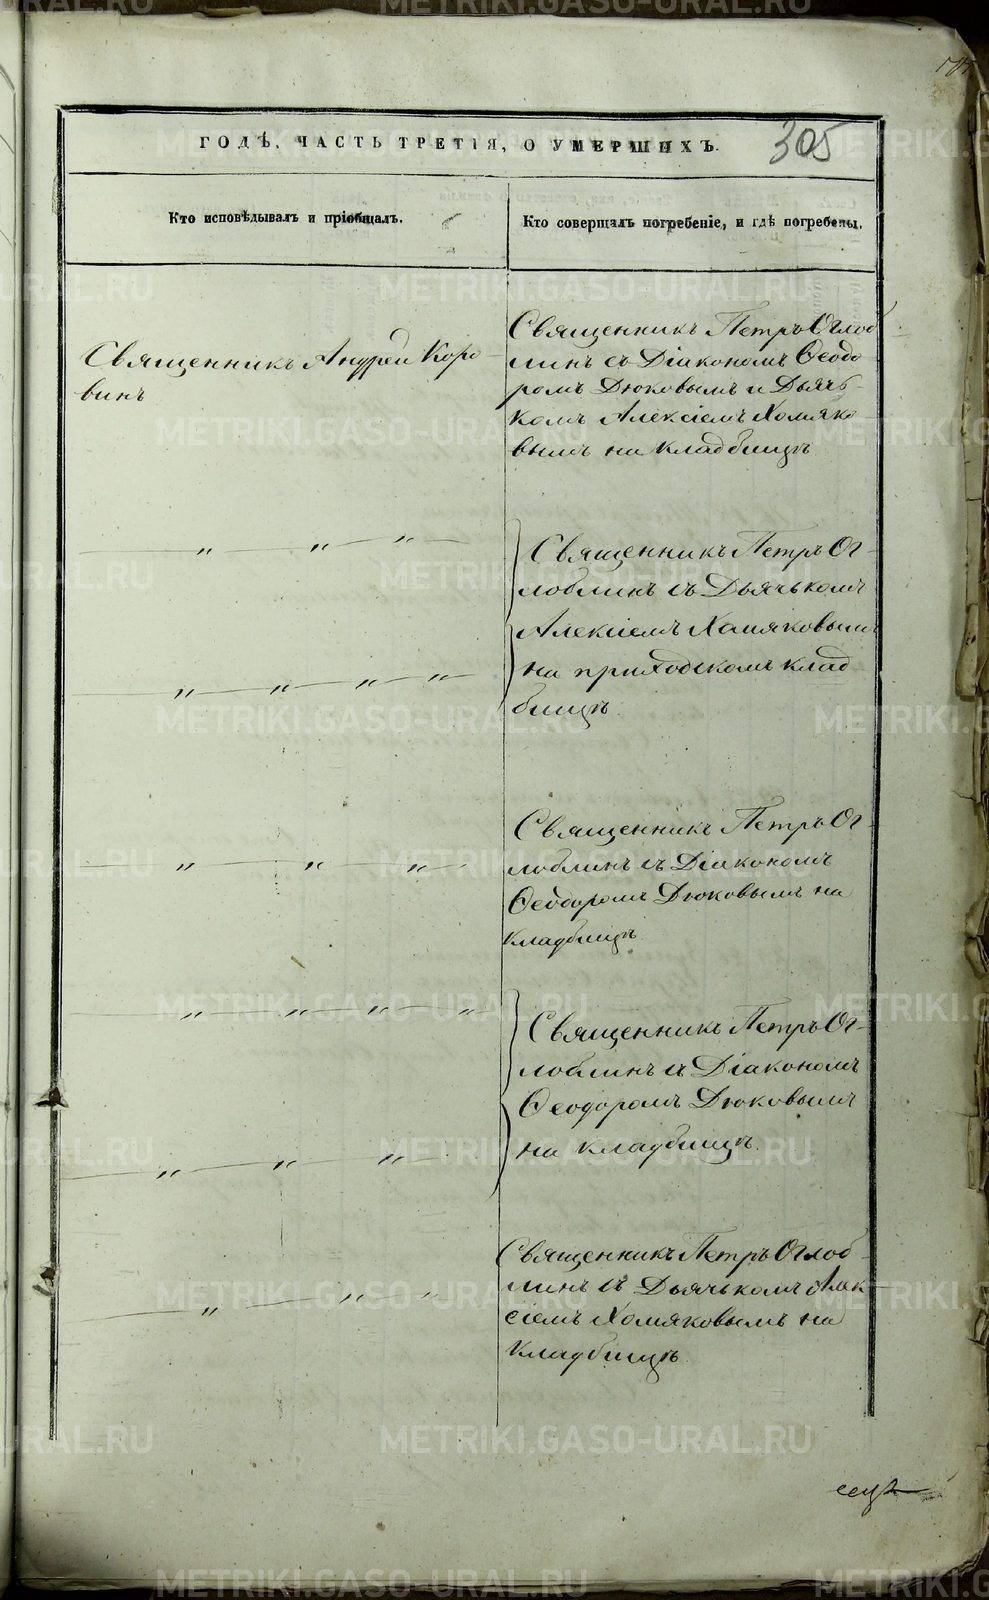 ГОДѢ, ЧАСТЬ ТРЕТІЯ, О УМЕРШИХЪ.
305
Кто исповѣдывалъ и пріобщалъ.
Кто совершалъ погребеніе, и гдѣ погребены.
Священникъ Андрей Коро-
винъ
Священникъ Петръ Оглоб
линъ съ Діакономъ Ѳеодо-
ромъ Дюковымъ и Дьячь-
комъ Алексіемъ Хомяко-
вымъ на кладбищѣ
" " "
Священникъ Петръ Ог-
лоблинъ съ Дьячькомъ
Алексіемъ Хамяковымъ
на приходскомъ клад
бищѣ.
" " " "
Священникъ Петръ Ог-
лоблинъ съ Діакономъ
Ѳеодоромъ Дюковымъ на
кладбищѣ
" " "
" " " "
Священникъ Петръ Ог-
лоблинъ съ Діакономъ
Ѳеодоромъ Дюковымъ
на кладбищѣ.
" " "
Священникъ Петръ Оглоб-
линъ съ Дьячькомъ Алек
сіемъ Хомяковымъ на
кладбищѣ
" " "
METRIKI.GASO-URAL.RU